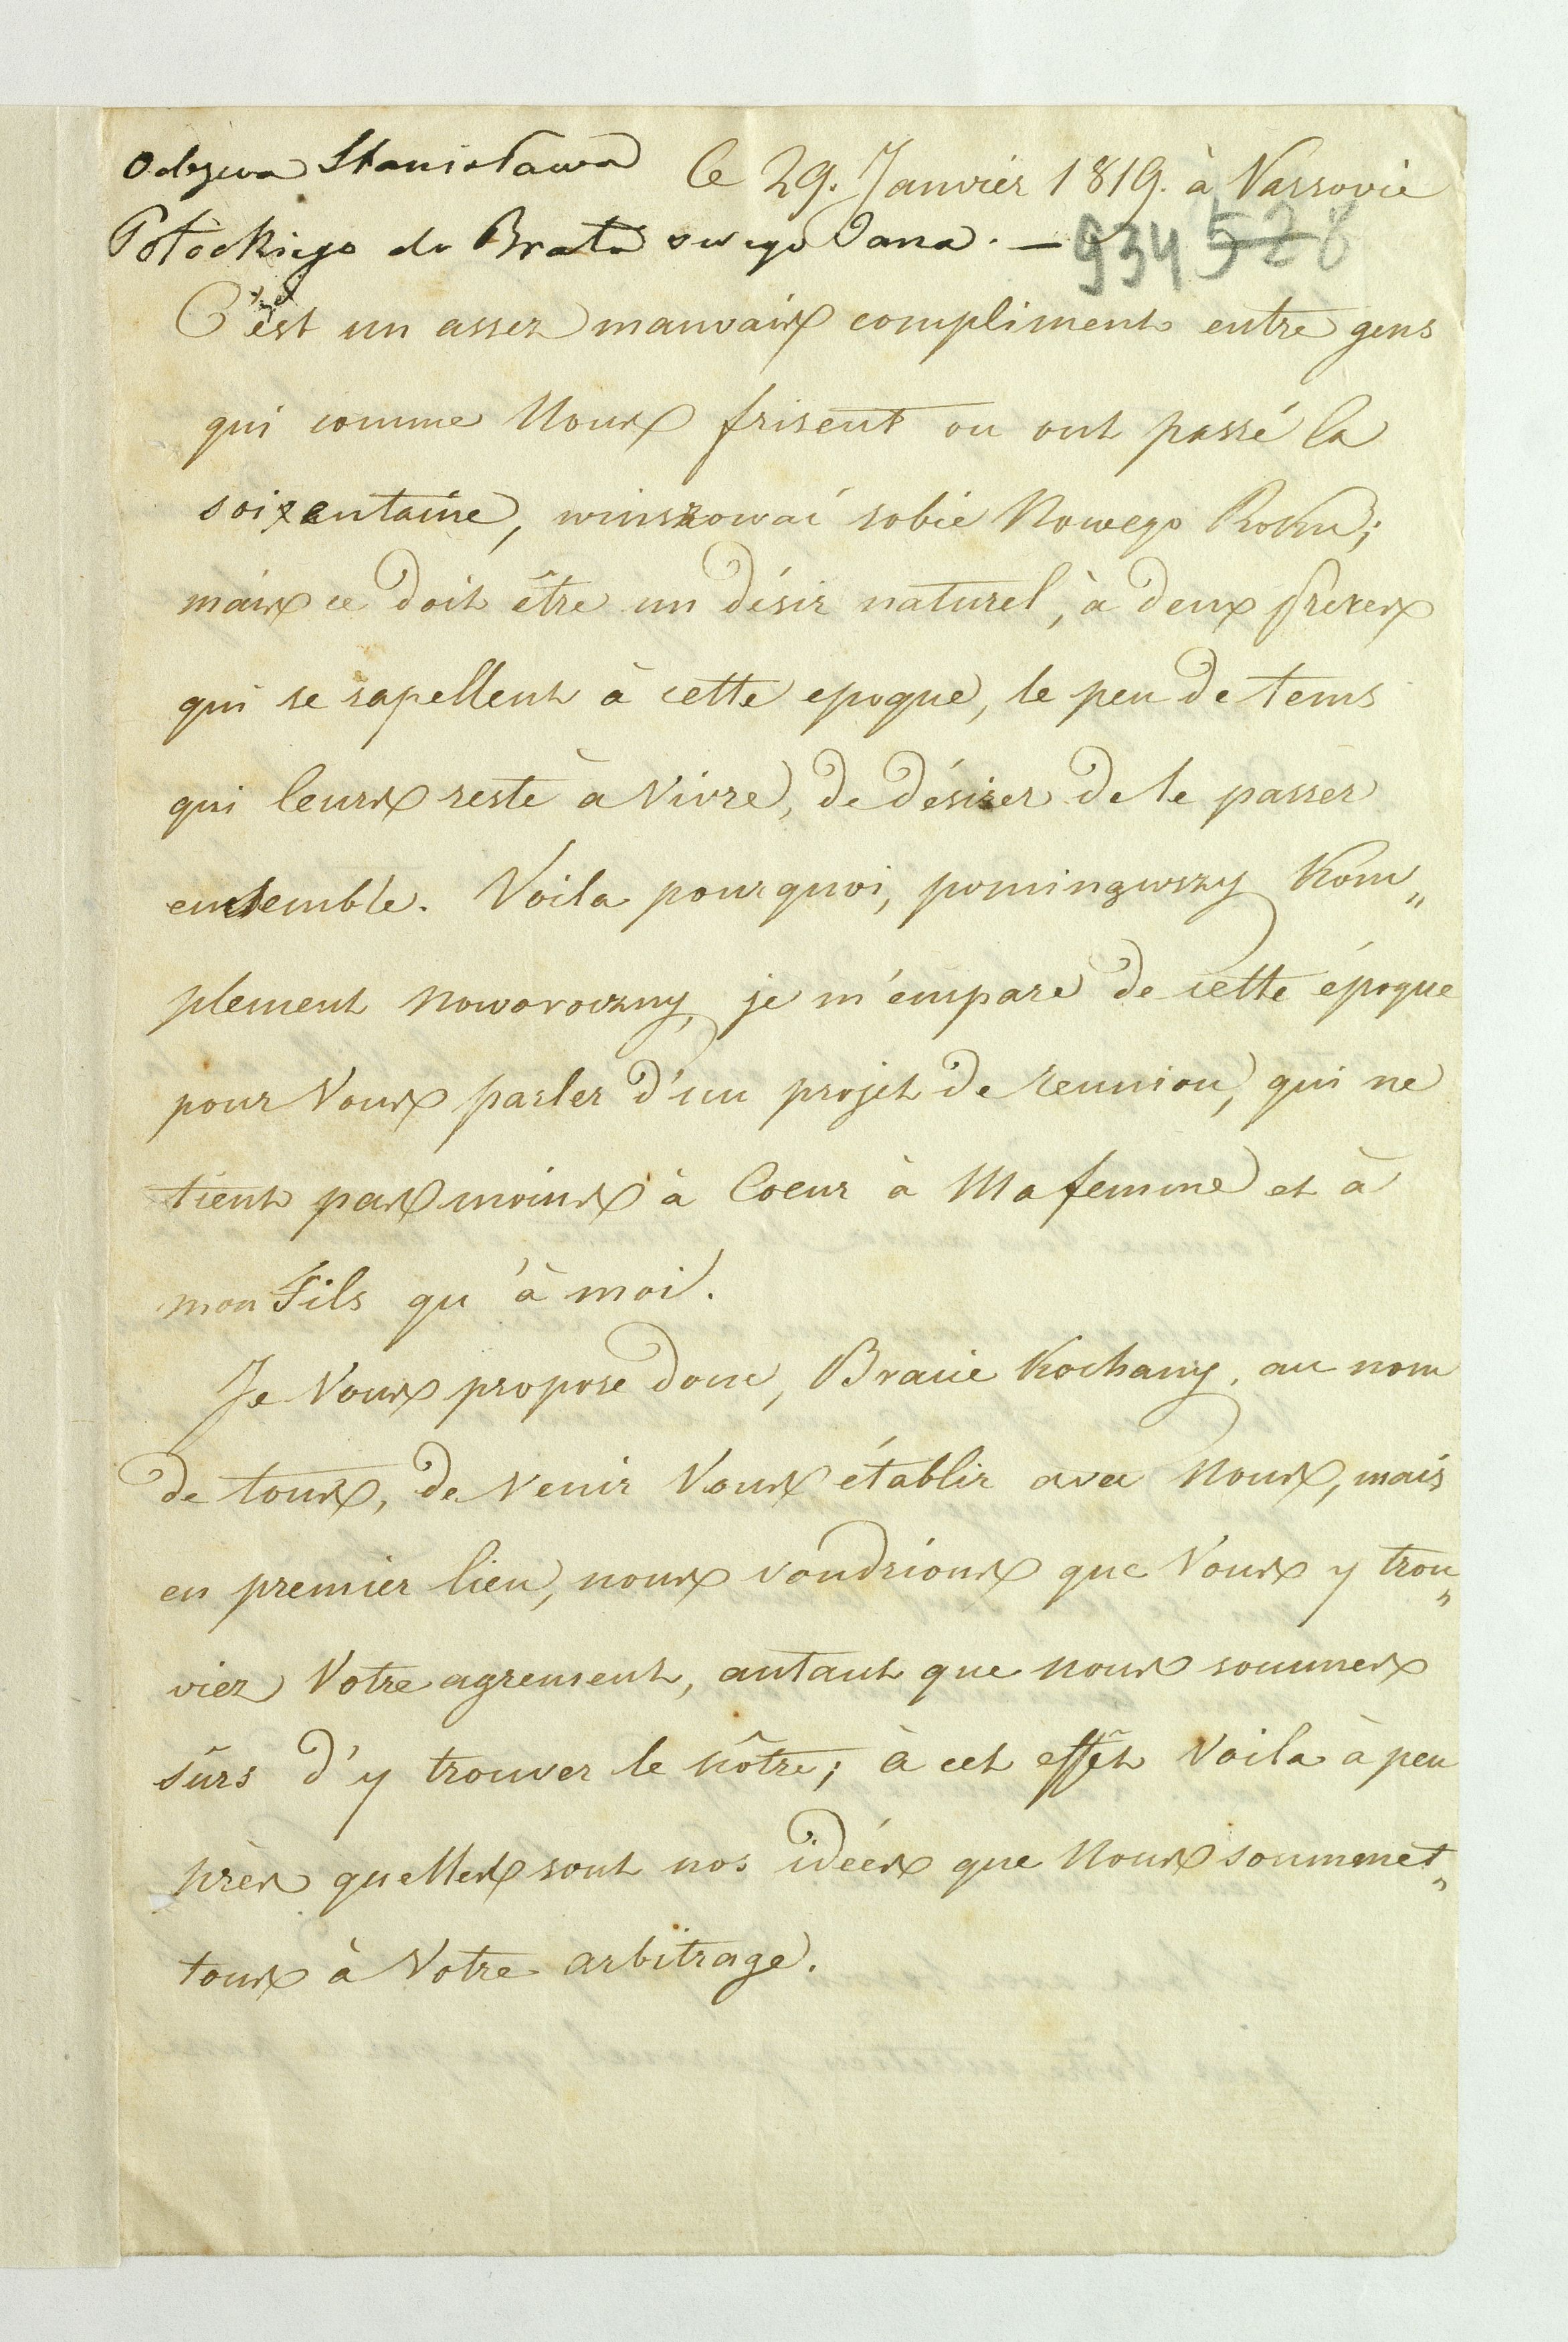 Odezwa Stanisława
le 29. Janvier 1819. à Varsovie
Potockiego do Brata swego Jana. —
934 528
C'est un assez mauvais compliment entre gens
qui comme Nous frisent ou ont passé la
soixantaine, winszowai sobie Nowego Roku;
mais ce doit être un désir naturel, à deux freres
qui se rapellent à cette epoque, le peu de tems
qui leurs reste à Vivre, de désirer de le passer
ensemble. Voila pourquoi, pominąwszy Kom„
plement noworoczny, je m'empare de cette époque
pour Vous parler d'un projet de reunion, qui ne
tient pas moins à Coeur à Ma femme et à
mon Fils qu'à moi.
Je Vous propose donc, Bracie Kochany, au nom
de tous, de Venir Vous établir avec Nous, mais
en premier lieu, nous voudrions que Vous y trou„
viez Votre agrement, autant que nous sommes
sûrs d'y trouver le nôtre; à cet effet Voila à peu
près quelles sont nos idées que Nous soummet„
tous à Votre arbitrage.